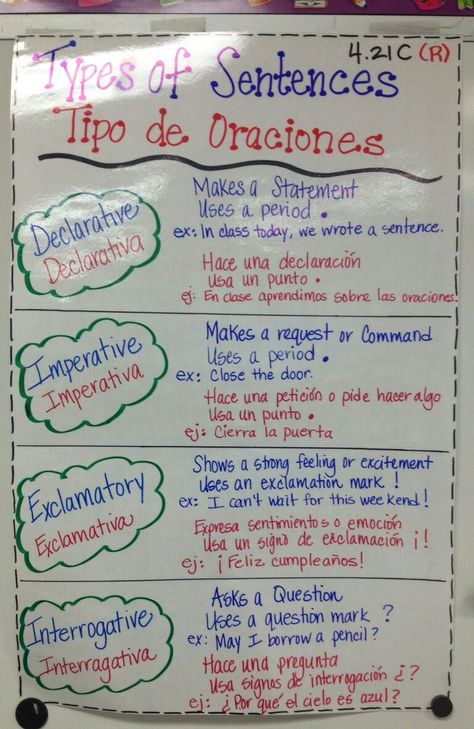 4.21C (R)
Types of Sentences
Tipo de Oraciones
Declarative
Declarativa
Makes a Statement
Uses a period .
ex: In class today, we wrote a sentence.
Hace una declaración
Usa un punto .
ej: En clase aprendimos sobre las oraciones.
Imperative
Imperativa
Makes a request or Command
Uses a period .
ex: Close the door.
Hace una petición o pide hacer algo
Usa un punto .
ej: Cierra la puerta
Exclamatory
Exclamativa
Shows a strong feeling or excitement
Uses an exclamation mark !
ex: I can't wait for this weekend!
Expresa sentimientos o emoción
Usa un signo de exclamación ¡!
ej: ¡Feliz cumpleaños!
Interrogative
Interragativa
Asks a Question
Uses a question mark ?
ex: May I borrow a pencil?
Hace una pregunta
Usa signos de interrogación ¿?
ej: ¿Por que el cielo es azul?